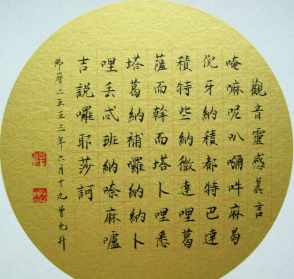 觀音靈感真言
唵嘛呢叭𡄣吽麻曷
倪牙納積都特巴達
積特些納微達哩葛
薩而斡而塔卜哩悉
塔葛納補囉納納卜
哩丟忒班納哈麻嚧
吉說囉耶莎訶
佛曆二五五三年六月十九